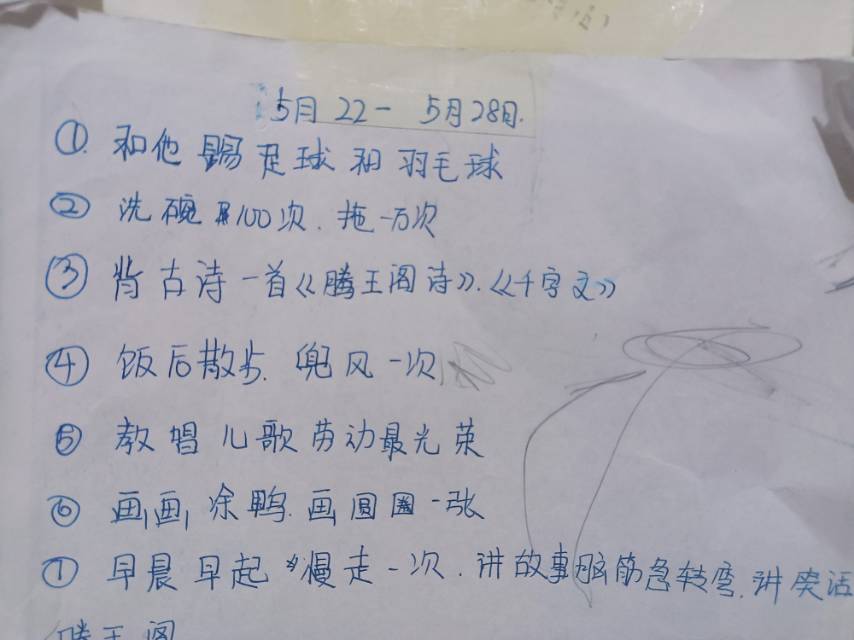 5月22一 5月28日.
①. 和他踢足球和羽毛球
② 洗碗100次. 拖一万次
③ 背古诗一首《腾王阁诗》.《千字文》
④ 饭后散步. 兜风一次
⑤ 教唱儿歌劳动最光荣
⑥ 画画, 涂鸭. 画圆圈一张
⑦ 早晨早起慢走一次. 讲故事脑筋急转弯. 讲笑话
腾王阁